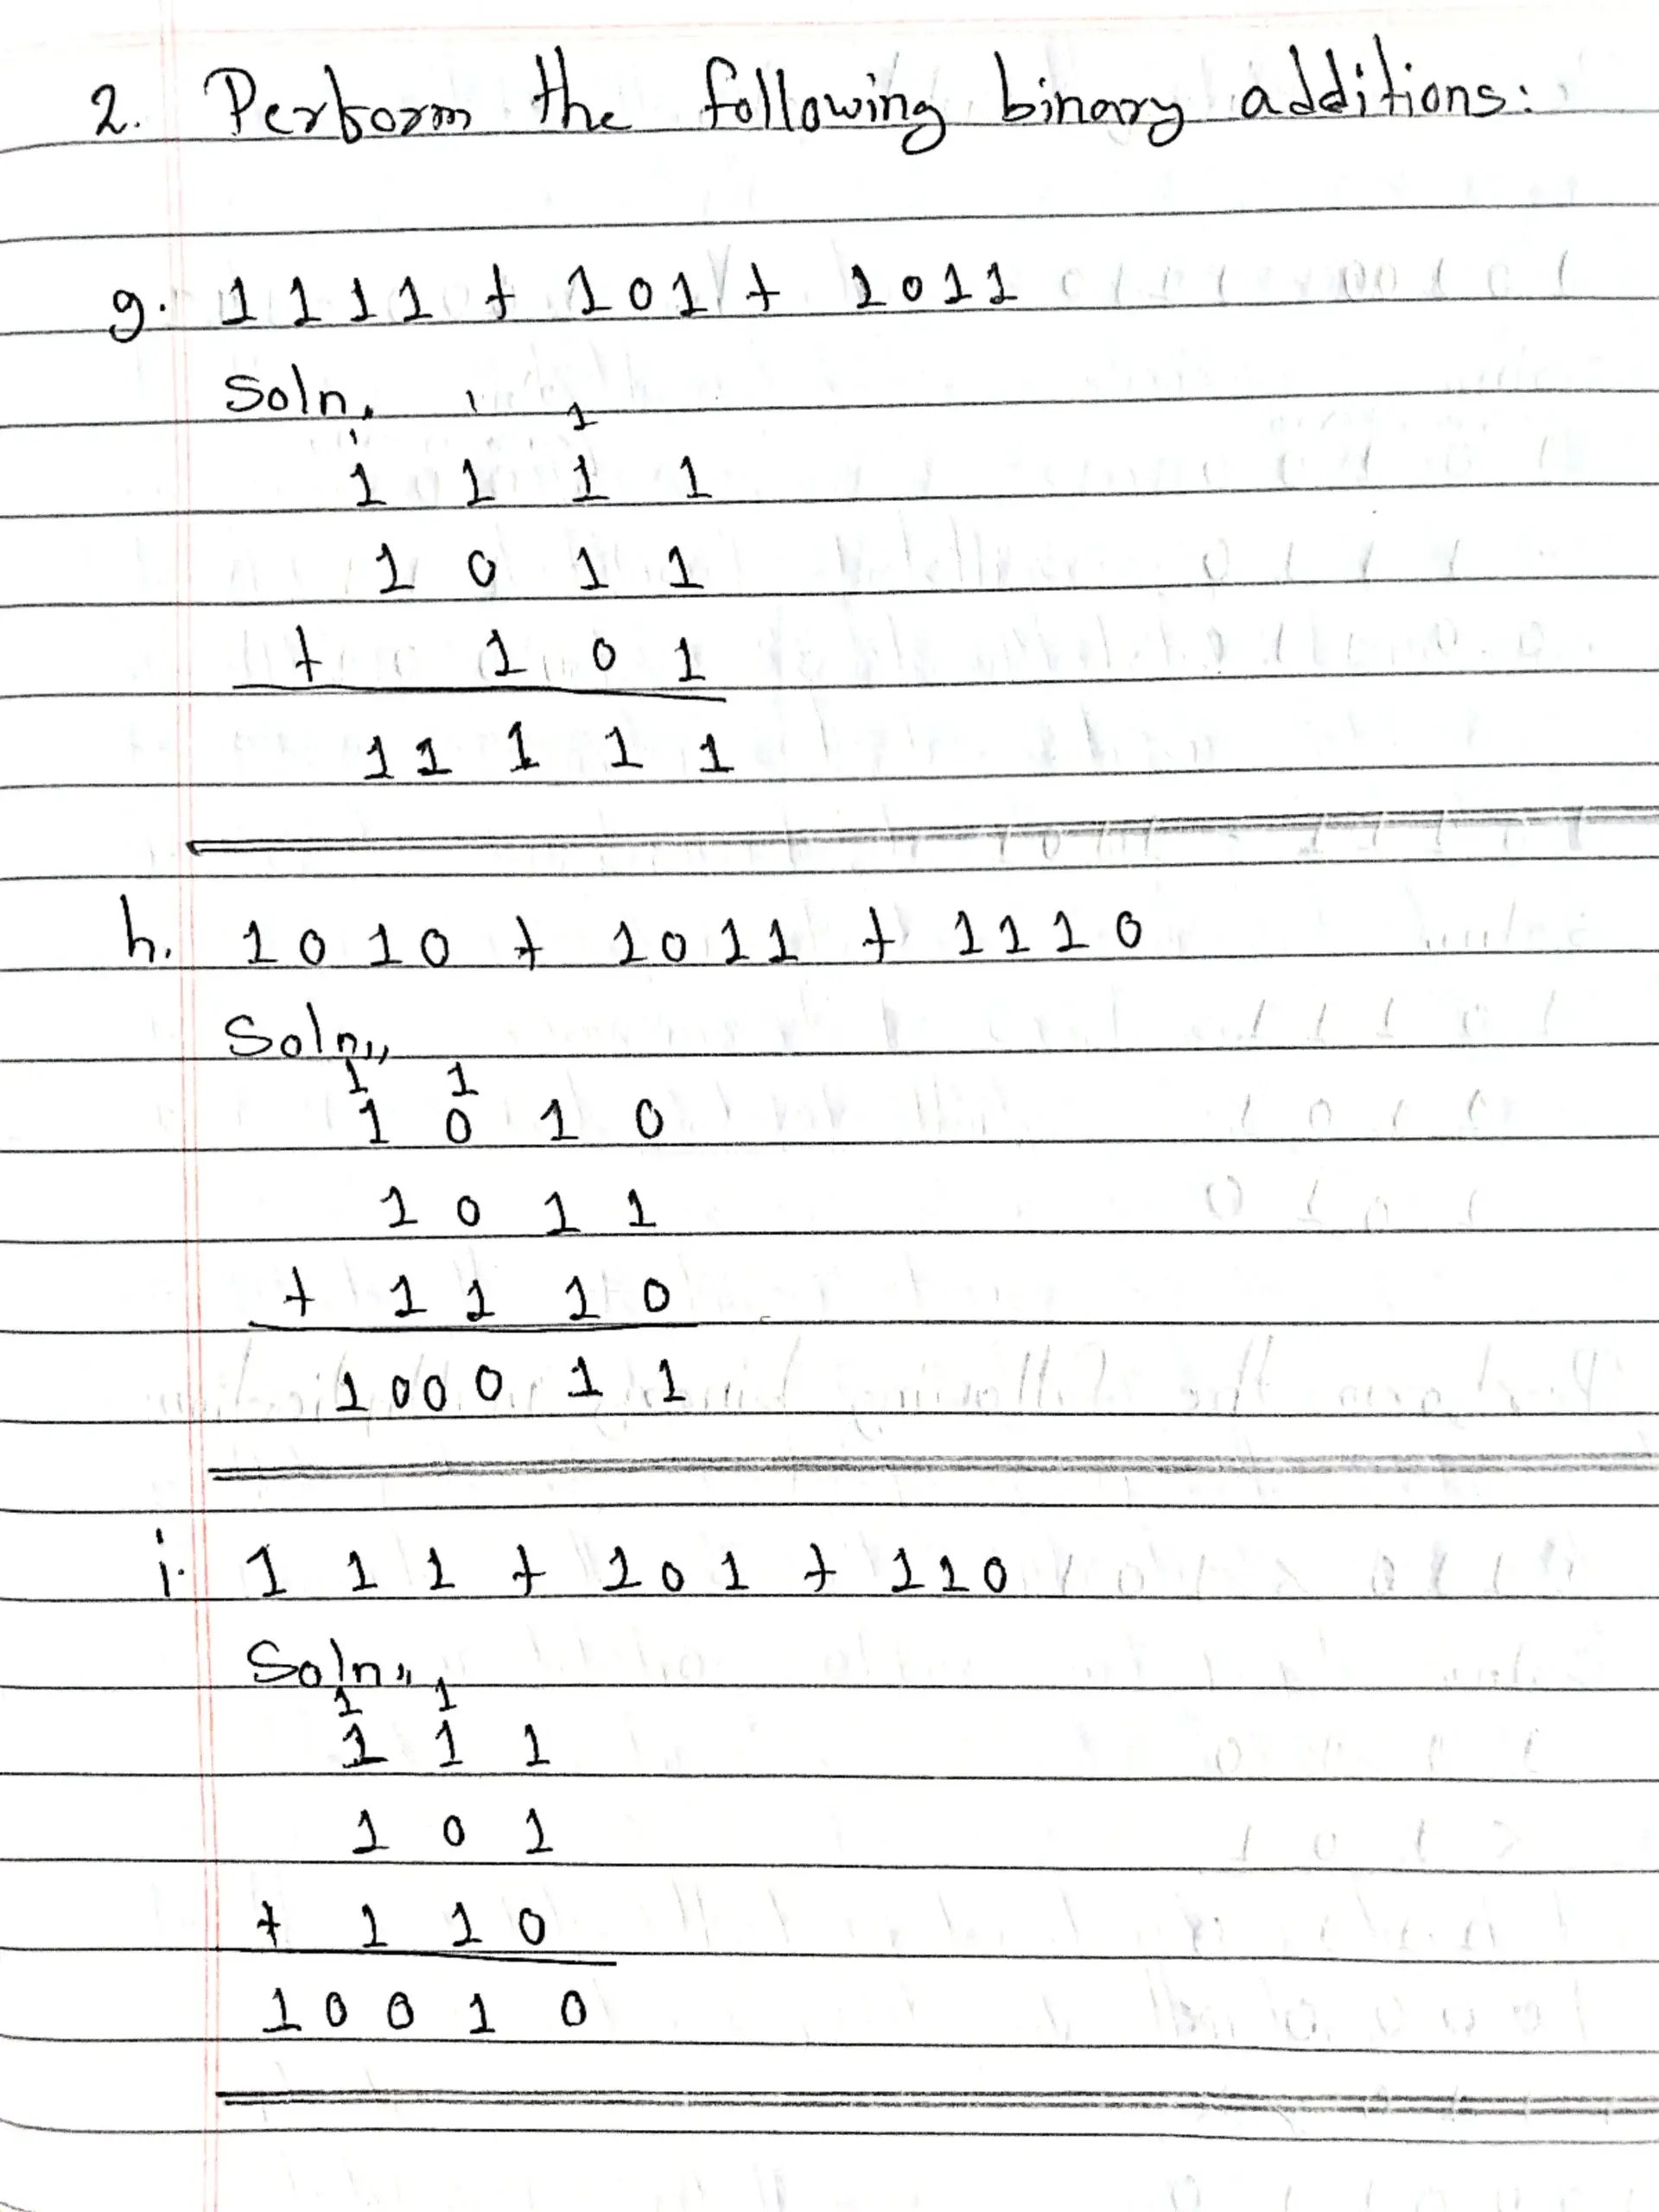 2. Perform the following binary additions:
g. 1 1 1 1 + 1 0 1 + 1 0 1 1
Soln,
1 1 1
1 1 1 1
1 0 1 1
+ 1 0 1
1 1 1 1 1
h. 1 0 1 0 + 1 0 1 1 + 1 1 1 0
Soln,,
1 1
1 0 1 0
1 0 1 1
+ 1 1 1 0
1 0 0 0 1 1
i. 1 1 1 + 1 0 1 + 1 1 0
Soln,,
1 1
1 1 1
1 0 1
+ 1 1 0
1 0 0 1 0